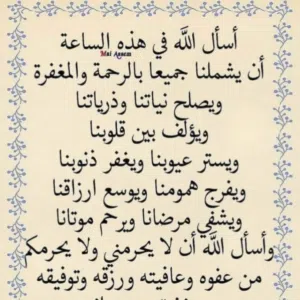 أسأل اللَّه في هذه الساعة
Mai Assem
أن يشملنا جميعا بالرحمة والمغفرة
ويصلح نياتنا وذرياتنا
ويؤلف بين قلوبنا
ويستر عيوبنا ويغفر ذنوبنا
ويفرج همومنا ويوسع ارزاقنا
ويشفي مرضانا ويرحم موتانا
وأسأل اللَّه أن لا يحرمني ولا يحرمكم
من عفوه وعافيته ورزقه وتوفيقه